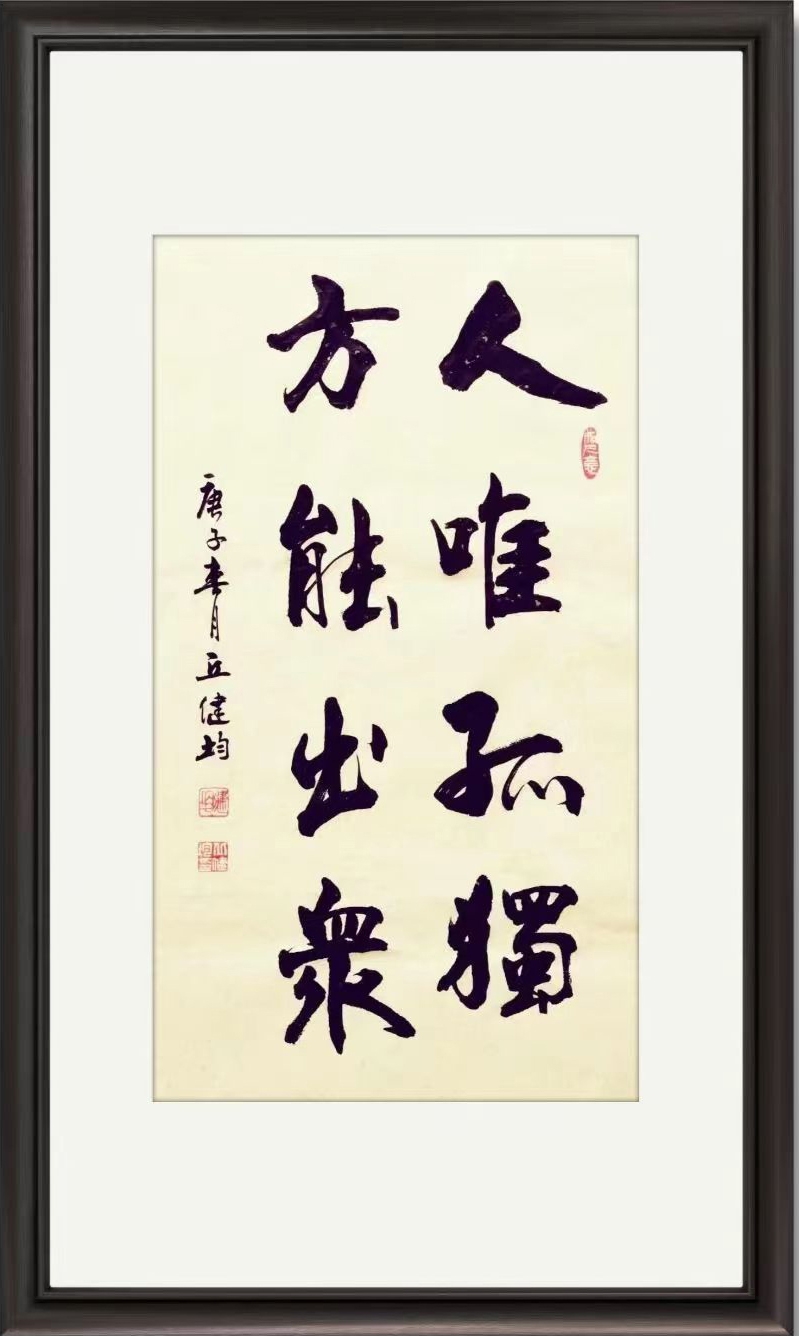 人唯孤獨
方能出衆
庚子春月丘健均